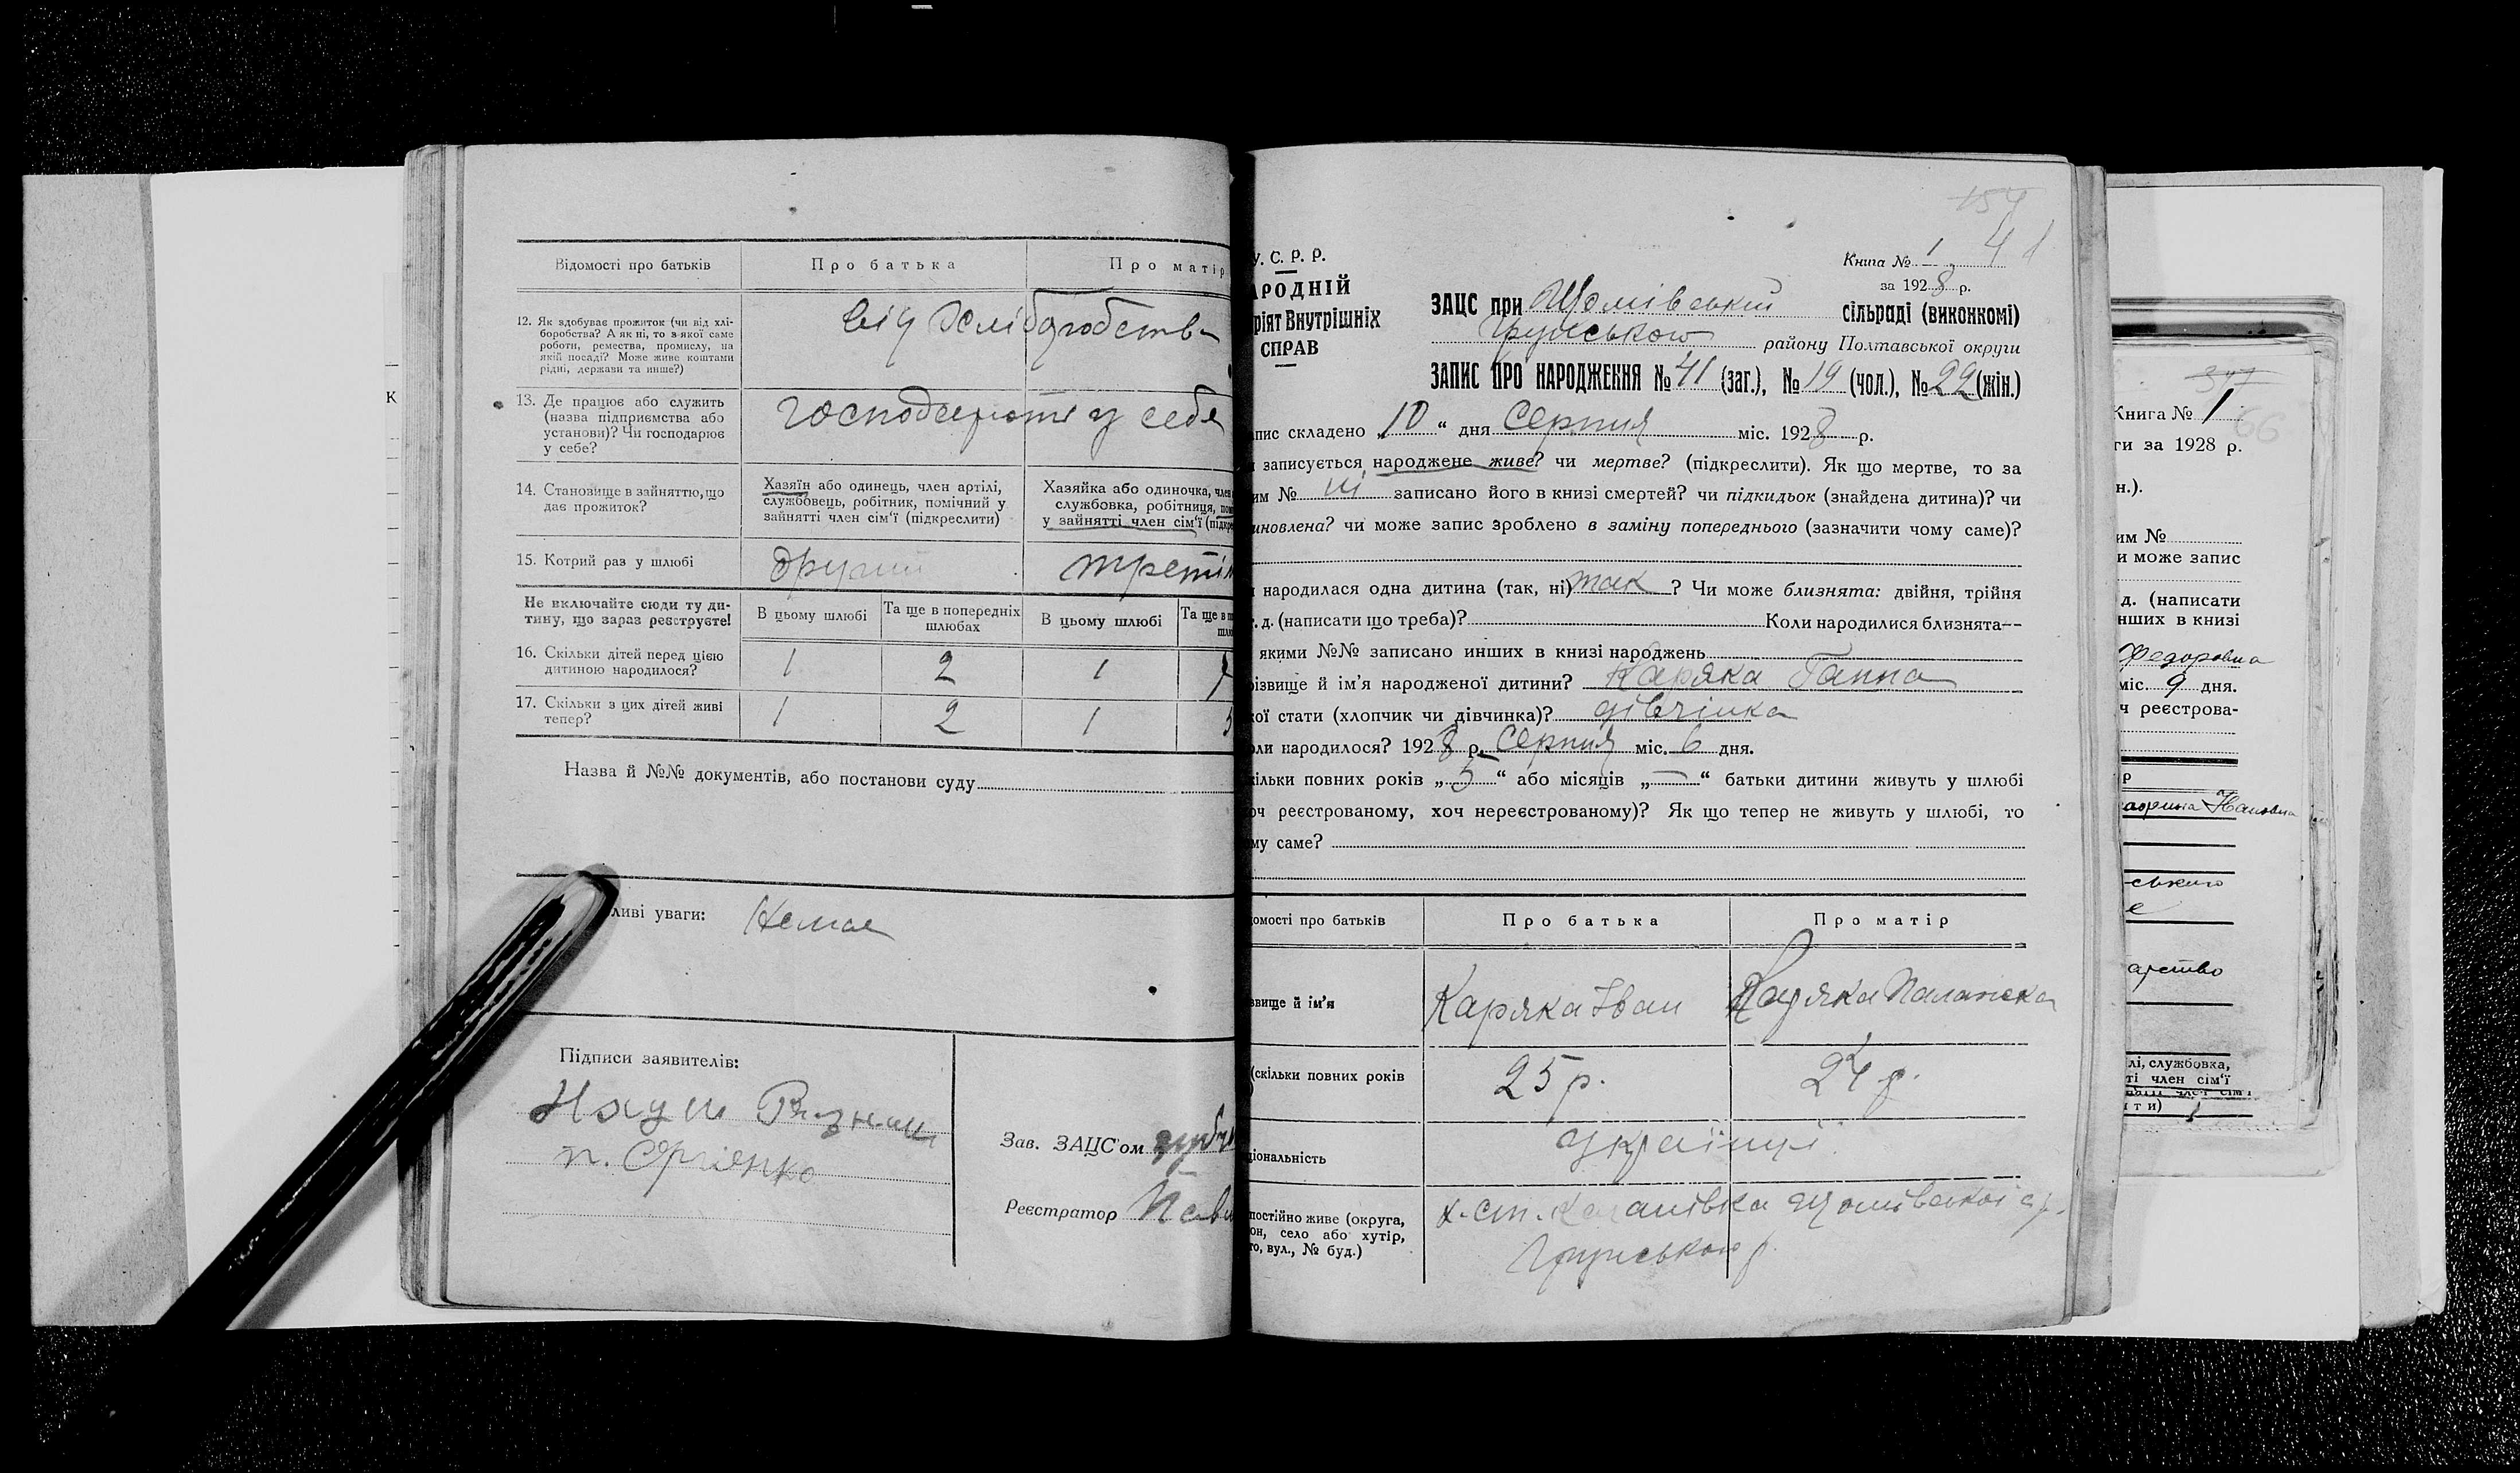 Відомості про батьків
Про батька
Про матір
12. Як здобуває прожиток (чи від хлі-
боробства? А як ні, то з якої саме
роботи, ремества, промислу, на
якій посаді? Може живе коштами
рідні, держави та инше?)
від хліборобства
13. Де працює або служить
(назва підприємства або
установи)? Чи господарює
у себе?
господарюють у себе
14. Становище в зайняттю, що
дає прожиток?
Хазяїн або одинець, член артілі,
службовець, робітник, помічний у
зайнятті член сім'ї (підкреслити)
Хазяйка або одиночка, член
службовка, робітниця,
у зайнятті член сім'ї
15. Котрий раз у шлюбі
другий
третій
Не включайте сюди ту ди-
тину, що зараз реєструєте!
В цьому шлюбі
Та ще в попередніх
шлюбах
В цьому шлюбі
Та ще в
16. Скільки дітей перед цією
дитиною народилося?
1 2 1
17. Скільки з цих дітей живі
тепер?
1 2 1
Назва й №№ документів, або постанови суду
ливі уваги: Немає
Підписи заявителів:
Наум
п. Сергієнко
Зав. ЗАЦС'ом
Реєстратор
У. С. Р. Р.
АРОДНІЙ
ріят Внутрішніх
СПРАВ
154
41
Книга № 1
за 1928 р.
ЗАЦС при Шомівський сільраді (виконкомі)
Грунського району Полтавської округи
ЗАПИС ПРО НАРОДЖЕННЯ № 41 (заг.), № 19 (чол.), № 22 (жін.)
пис складено „10“ дня Серпня міс. 1928 р.
записується народжене живе? чи мертве? (підкреслити). Як що мертве, то за
им № записано його в книзі смертей? чи підкидьок (знайдена дитина)? чи
иновлена? чи може запис зроблено в заміну попереднього (зазначити чому саме)?
народилася одна дитина (так, ні) так ? Чи може близнята: двійня, трійня
т. д. (написати що треба)? Коли народилися близнята—
якими №№ записано инших в книзі народжень
різвище й ім'я народженої дитини? Каряка Ганна
кої стати (хлопчик чи дівчинка)? дівчинка
оли народилося? 1928 р. Серпня міс. 6 дня.
кільки повних років „5“ або місяців „—“ батьки дитини живуть у шлюбі
оч реєстрованому, хоч нереєстрованому)? Як що тепер не живуть у шлюбі, то
му саме?
домості про батьків
Про батька
Про матір
звище й ім'я
Каряка Іван
Каряка Палажка
(скільки повних років
25 р.
24 р.
ціональність
українці
постійно живе (округа,
он, село або хутір,
то, вул., № буд.)
Грунського р.
347
66
Книга № 1
ги за 1928 р.
н.).
им №
и може запис
д. (написати
нших в книзі
Федоровна
міс. 9 дня.
ч реєстрова-
р
Ивановна
ського
арство
лі, службовка,
ті член сім'ї
ити)
К